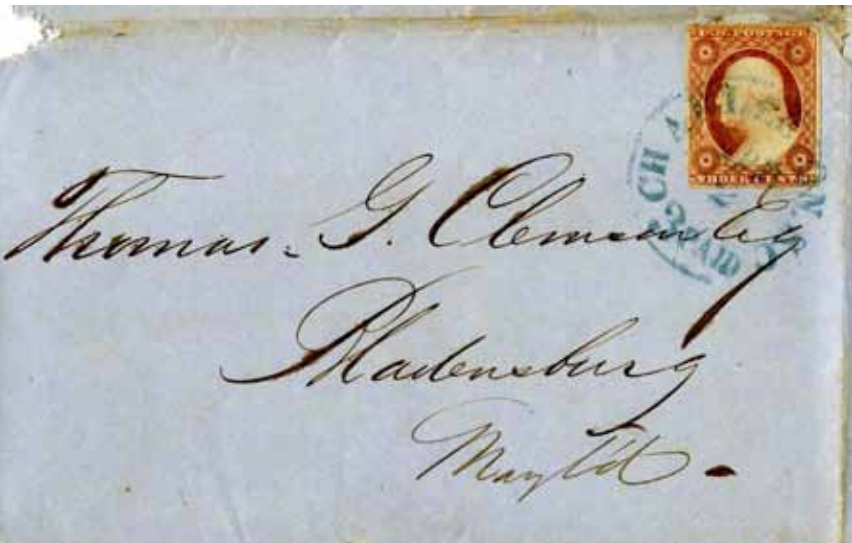 THREE CENTS
CHA
PAID
Thomas. G. Clemson Esq
Bladensburg
Mary'ld